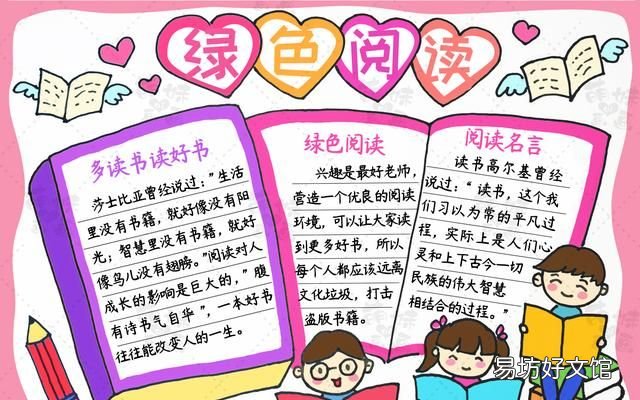 绿色阅读
多读书读好书
莎士比亚曾经说过："生活
里没有书籍，就好像没有阳
光；智慧里没有书籍，就好
像鸟儿没有翅膀。"阅读对人
成长的影响是巨大的，"腹
有诗书气自华"，一本好书
往往能改变人的一生。
绿色阅读
兴趣是最好老师，
营造一个优良的阅读
环境，可以让大家读
到更多好书，所以
每个人都应该远离
文化垃圾，打击
盗版书籍。
阅读名言
读书高尔基曾经
说过："读书，这个我
们习以为常的平凡过
程，实际上是人们心
灵和上下古今一切
民族的伟大智慧
相结合的过程。"
易坊好文馆